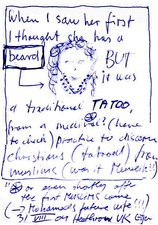 When I saw her first
I thought she has a
beard
BUT
it was
a traditional TATOO,
from a medieval? (have
to check) practice to discern
Christians (tatooed) from
muslims (was it Memeth?)
or even shortly after
the first
(→ Mohamed's future wife!!!)
31 VIII on Heathrow UK